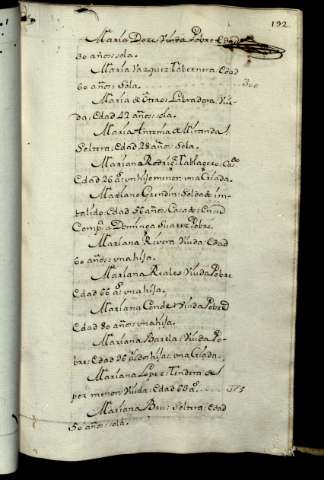 192
Maria Doze Viuda Pobre Edad
30 años: sola.
Maria Vazquez Tabernera. Edad
60 años: sola.
Maria de Otras, Labradora, Viu-
da, Edad 42 años: sola.
Maria Antonia de Miranda
Soltera: Edad 28 años: Sola.
Mariana Rodrig.z
Edad 26 a.s un hijo menor: una Criada.
Mariano Grendin: Soldado im-
balido: Edad 56 años: Casado: En su
Comp.a Dominga Suarez Pobre.
Mariana Rivera Viuda: Edad
60 años: una hija.
Mariana Reales Viuda Pobre
Edad 66 a.s una hija.
Mariana Conde: Viuda Pobre
Edad 80 años: una hija.
Mariana Barela: Viuda Po-
bre: Edad 36 a.s dos hijas: una Criada.
Mariana Lopez: Tendera de
por menor: Viuda: Edad 68 a.s
Mariana Bru: Soltera: Edad
50 años: sola.